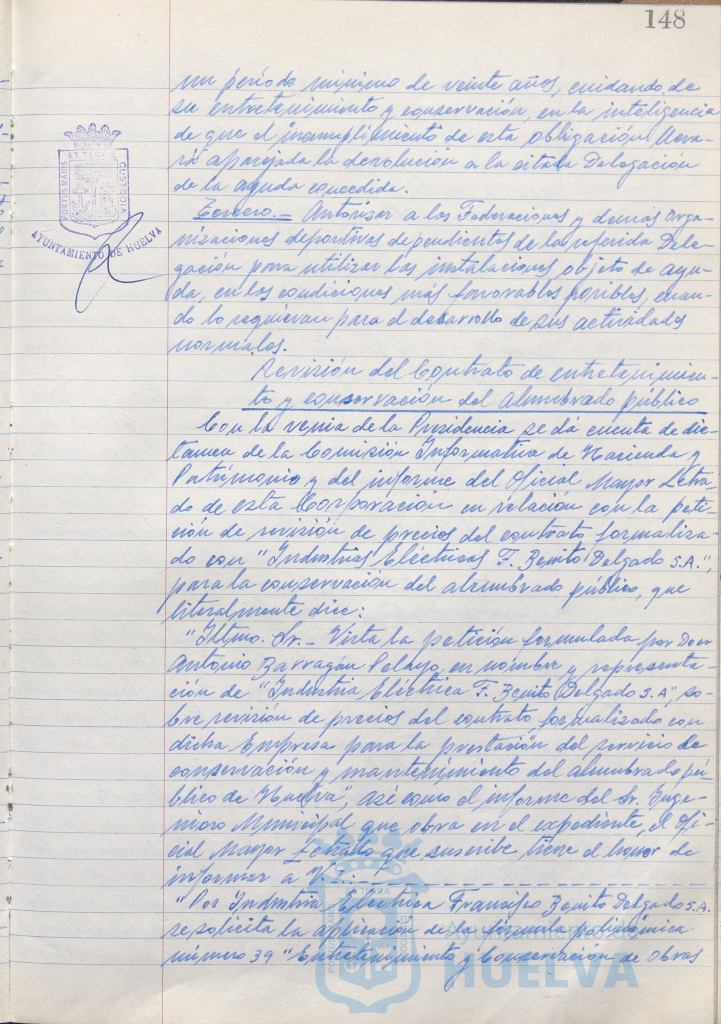 148
un período mínimo de veinte años, cuidando de
su entretenimiento y conservación, en la inteligencia
de que el incumplimiento de esta obligación lleva-
rá aparejada la devolución a la citada Delegación
de la ayuda concedida.
Tercero.- Autorizar a las Federaciones y demás orga-
nizaciones deportivas dependientes de la referida Dele-
gación para utilizar las instalaciones objeto de ayu-
da, en las condiciones más favorables posibles, cuan-
do lo requieran para el desarrollo de sus actividades
normales.
Revisión del Contrato de entretenimien-
to y conservación del alumbrado público
Con la venia de la Presidencia se dá cuenta de dic-
tamen de la Comisión Informativa de Hacienda y
Patrimonio y del informe del Oficial Mayor Letra-
do de esta Corporación en relación con la peti-
ción de revisión de precios del contrato formaliza-
do con "Industrias Eléctricas F. Benito Delgado S.A.",
para la conservación del alumbrado público, que
literalmente dice:
"Iltmo. Sr.- Vista la petición formulada por Don
Antonio Barragan Pelayo, en nombre y representa-
ción de "Industria Eléctrica F. Benito Delgado S.A", so-
bre revisión de precios del contrato formalizado con
dicha Empresa para la prestación del servicio de
conservación y mantenimiento del alumbrado pú-
blico de Huelva", asi como el informe del Sr. Inge-
niero Municipal que obra en el expediente, el Ofi-
cial Mayor Letrado que suscribe tiene el honor de
informar a V.I.:
"Por Industria Electrica Francisco Benito Delgado S.A.
se solicita la aplicación de la fórmula polinómica
número 39 "Entretenimiento y Conservación de Obras
PORTUS MARIS ET TERRAE CUSTODIA
AYUNTAMIENTO DE HUELVA
Ayuntamiento de
HUELVA